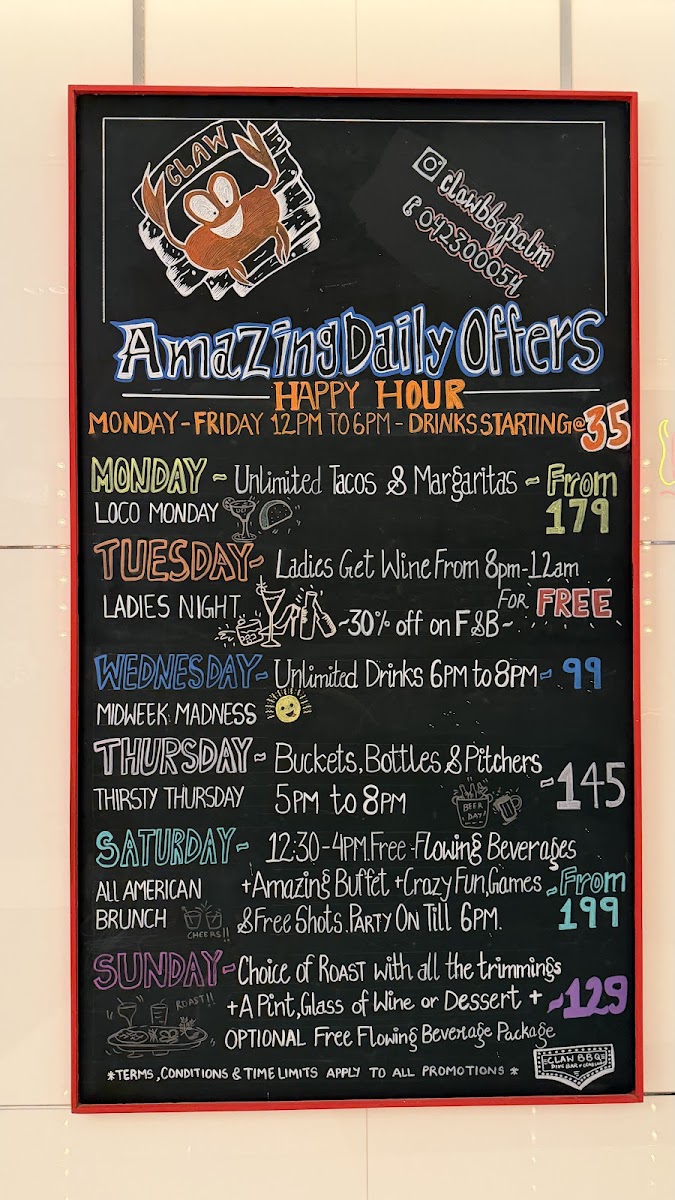 CLAW
clawbbqpalm
042300054
Amazing Daily Offers
HAPPY HOUR
MONDAY - FRIDAY 12PM TO 6PM - DRINKS STARTING@ 35
MONDAY ~ Unlimited Tacos & Margaritas ~ From
LOCO MONDAY 179
TUESDAY ~ Ladies Get Wine From 8pm-12am
LADIES NIGHT FOR FREE
~30% off on F&B~
WEDNESDAY ~ Unlimited Drinks 6PM to 8PM ~ 99
MIDWEEK MADNESS
THURSDAY ~ Buckets, Bottles & Pitchers
THIRSTY THURSDAY 5PM to 8PM ~145
BEER DAY!
SATURDAY ~ 12:30-4PM.Free-Flowing Beverages
ALL AMERICAN +Amazing Buffet +Crazy Fun,Games ~From
BRUNCH &Free Shots.PARTY ON TILL 6PM. 199
CHEERS!!
SUNDAY ~ Choice of ROAST with all the trimmings
ROAST!! +A Pint,Glass of Wine or Dessert + ~129
OPTIONAL Free Flowing Beverage Package
*TERMS,CONDITIONS & TIME LIMITS APPLY TO ALL PROMOTIONS *
CLAW BBQ